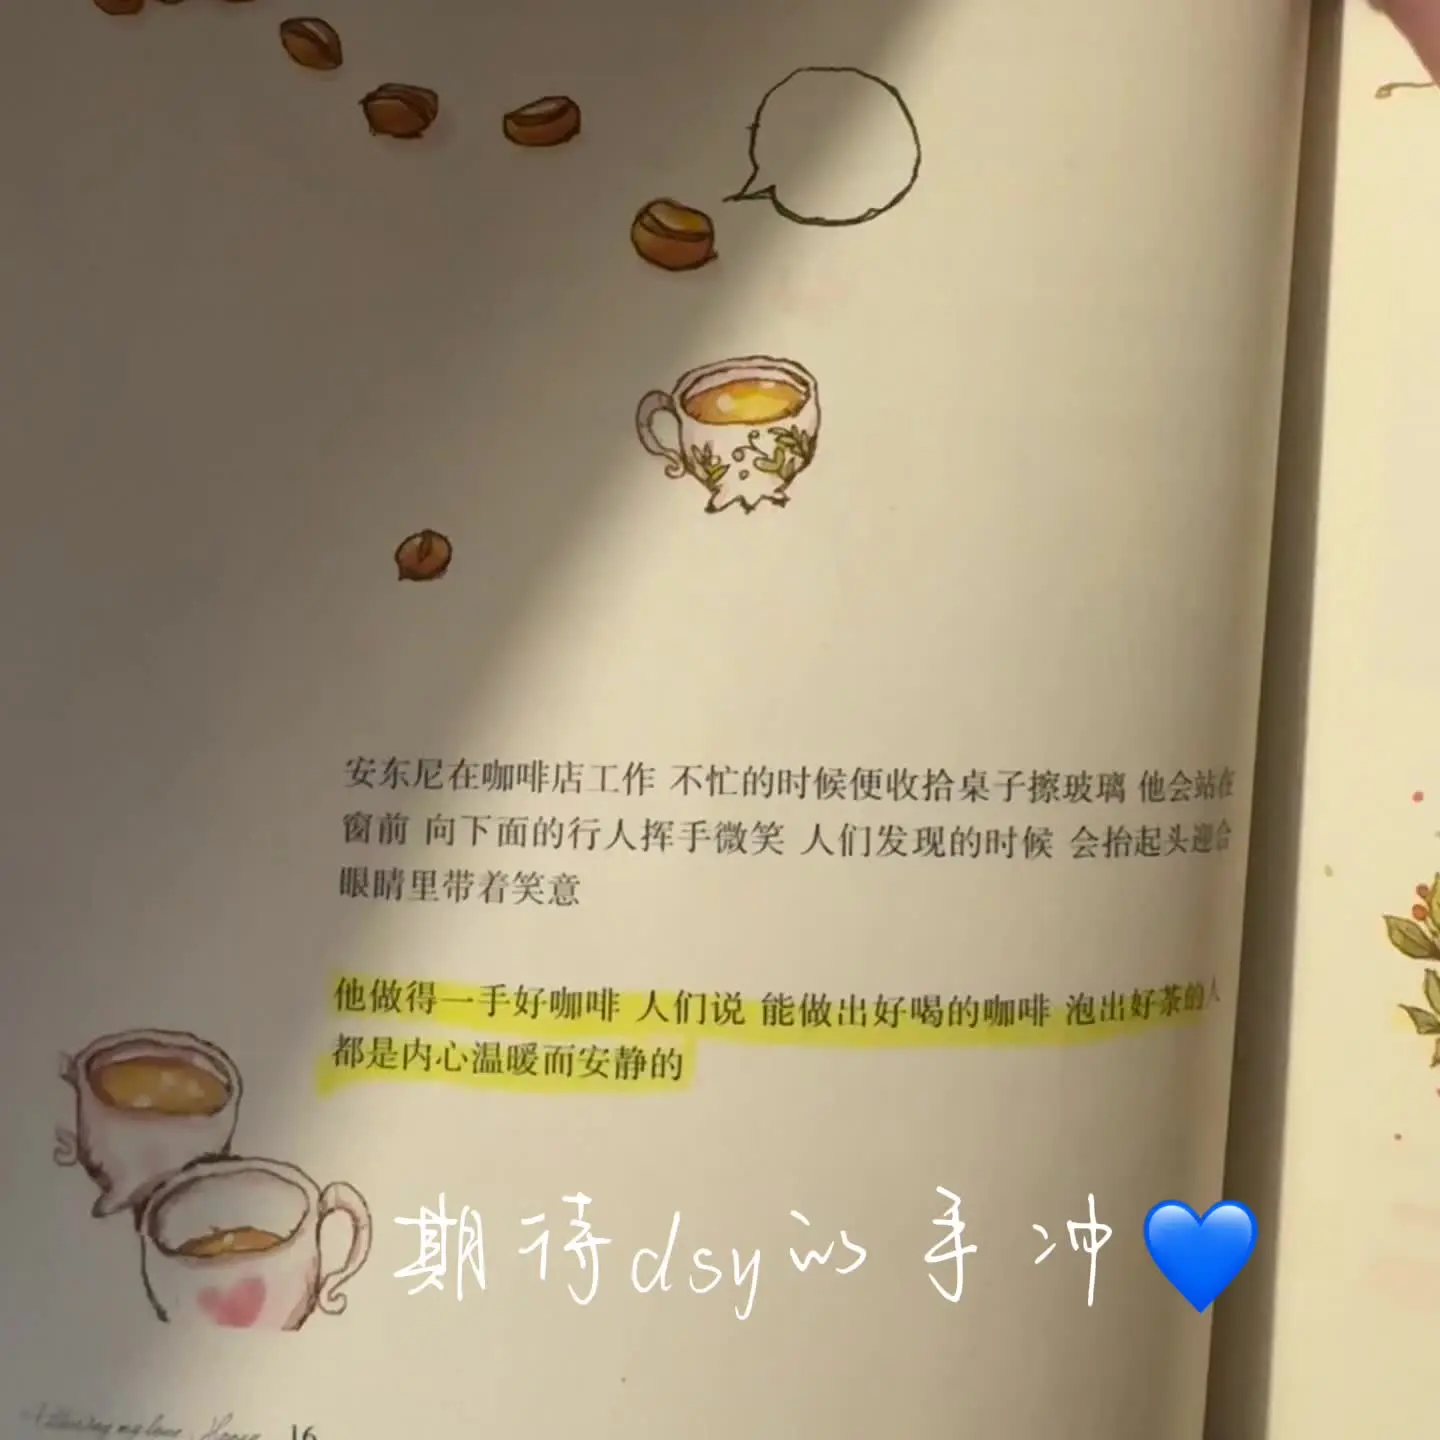 安东尼在咖啡店工作 不忙的时候便收拾桌子擦玻璃 他会站在
窗前 向下面的行人挥手微笑 人们发现的时候 会抬起头迎合
眼睛里带着笑意
他做得一手好咖啡 人们说 能做出好喝的咖啡 泡出好茶的人
都是内心温暖而安静的
期待dsy的手冲💙
my love 16